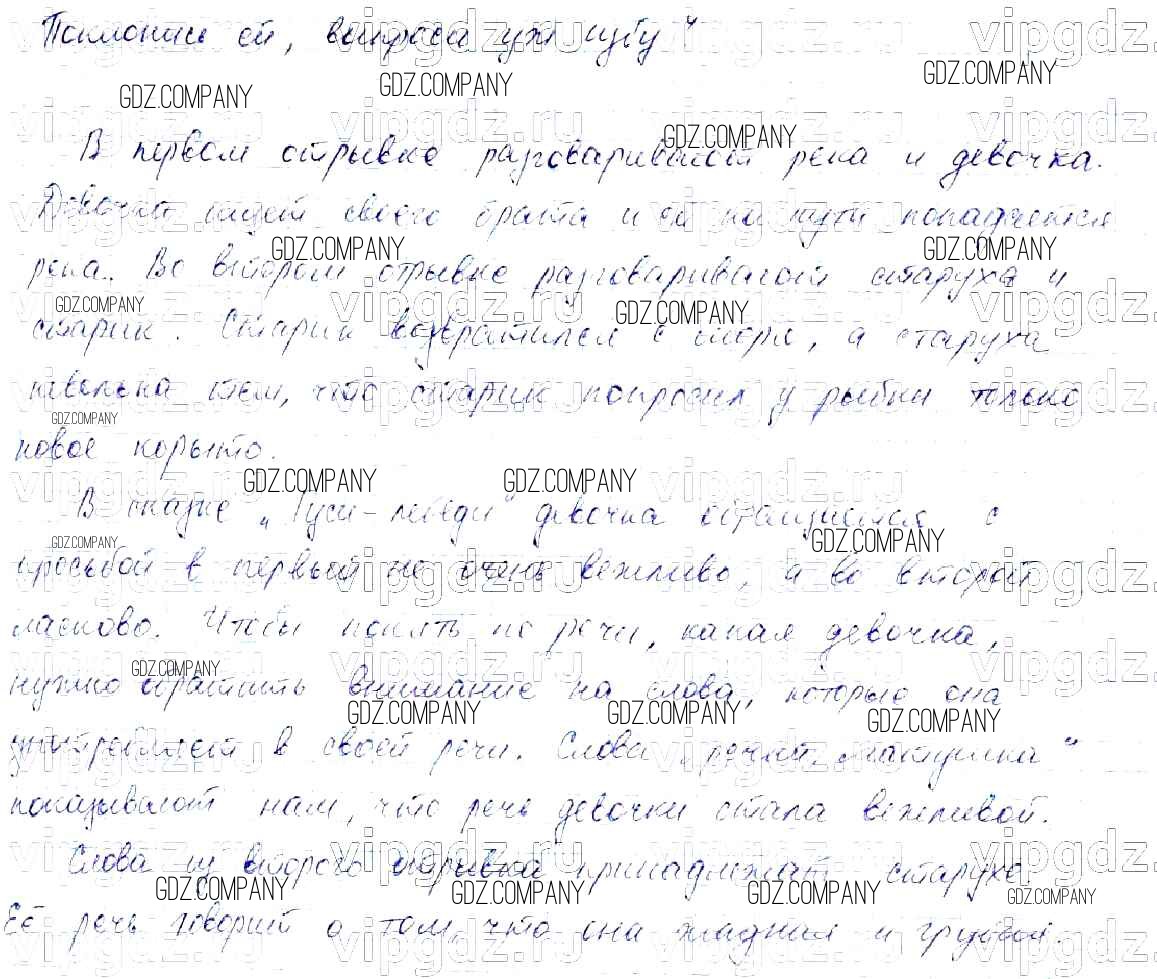 Поклонись ей, выпроси уж избу"
В первом отрывке разговаривают река и девочка.
Девочка ищет своего брата и ей на пути попадается
река. Во втором отрывке разговаривают старуха и
старик. Старик возвратился с моря, а старуха
недовольна тем, что старик попросил у рыбки только
новое корыто.
В сказке "Гуси-лебеди" девочка обращается с
просьбой в первый не очень вежливо, а во второй
ласково. Чтобы понять по речи, какая девочка,
нужно обратить внимание на слова, которые она
употребляет в своей речи. Слова "речка, матушка"
показывают нам, что речь девочки стала вежливой.
Слова из второго отрывка принадлежат старухе.
Её речь говорит о том, что она жадная и грубая.
GDZ.COMPANY
vipgdz.ru